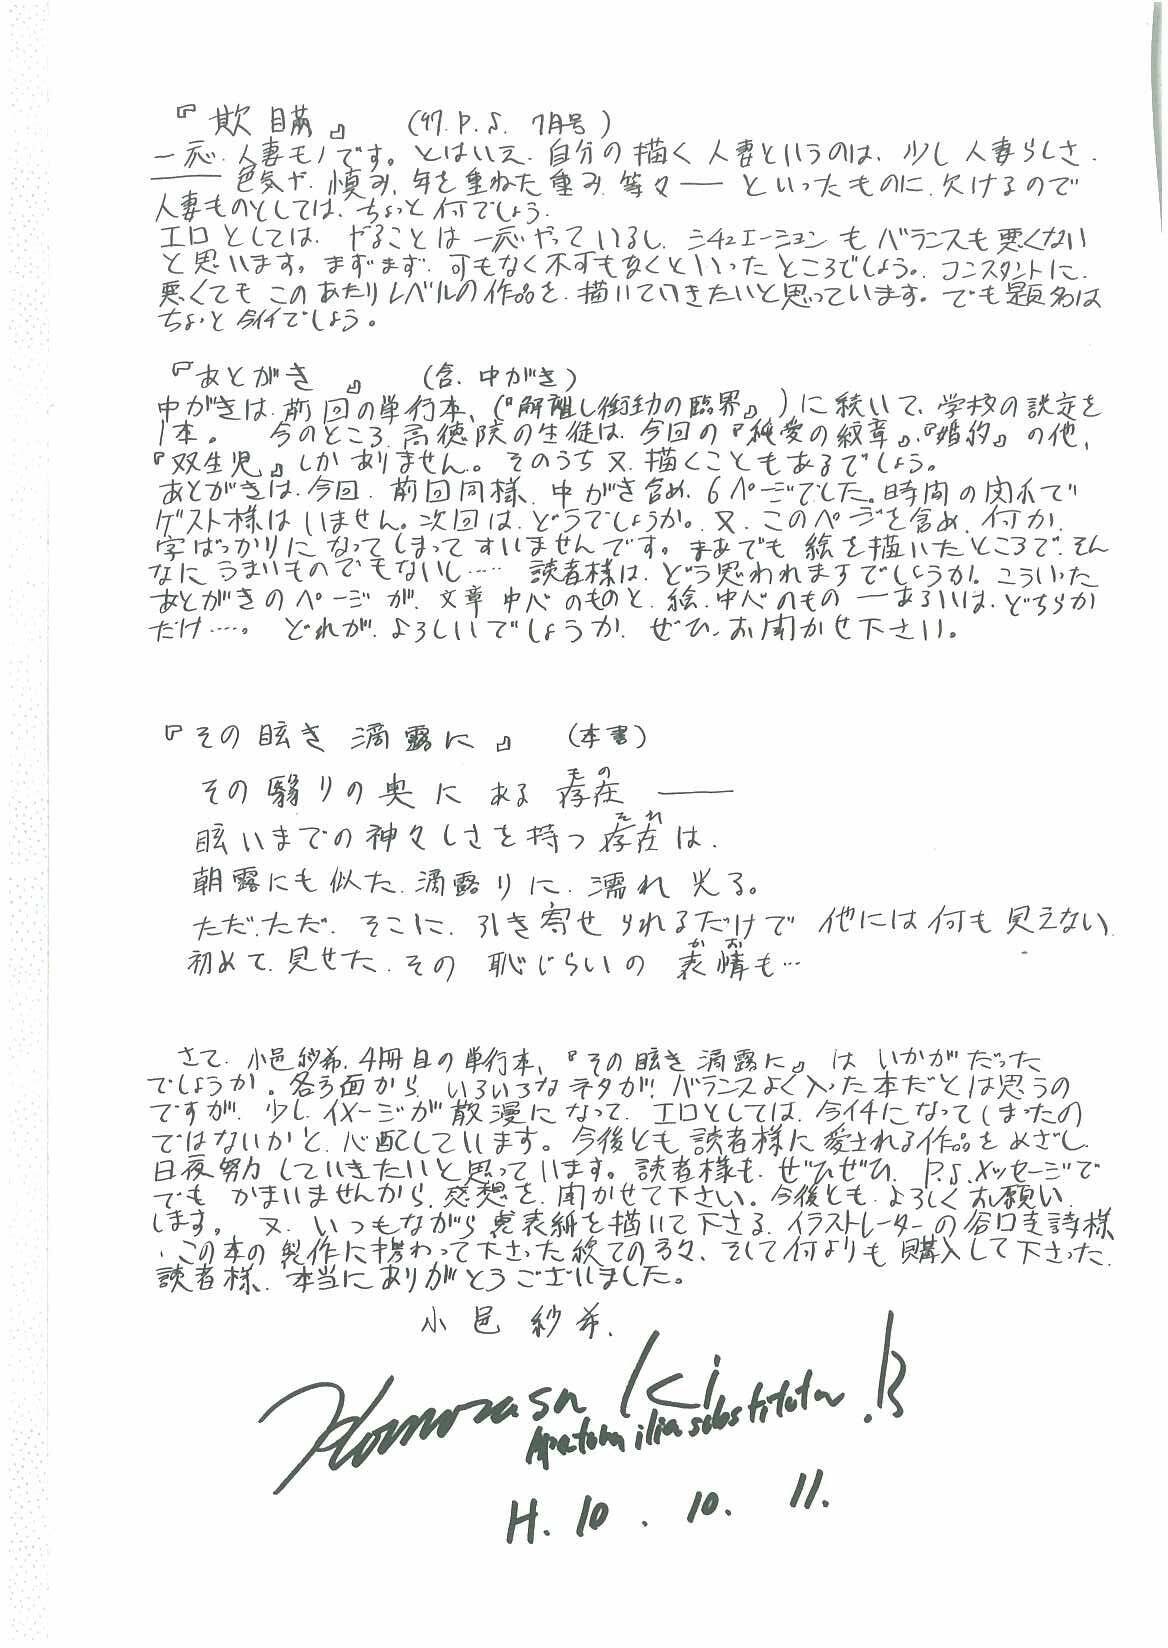 『欺瞞』 ('97. P.S. 7月号)
一応、人妻モノです。とはいえ、自分の描く人妻というのは、少し人妻らしさ、
――色気や、慎み、年を重ねた重み、等々――といったものに、欠けるので
人妻ものとしては、ちょっと何でしょう。
エロとしては、やることは一応やっているし、シチュエーションもバランスも悪くない
と思います。まずまず、可もなく不可もなくといったところでしょう。コンスタントに、
悪くてもこのあたりレベルの作品を、描いていきたいと思っています。でも題名は
ちょっと今イチでしょう。
『あとがき』 (含、中がき)
中がきは、前回の単行本、(『解離し衝動の臨界』)に続いて、学校の設定を
1本。 今のところ、高徳院の生徒は、今回の『純愛の紋章』、『婚約』の他、
『双生児』しかありません。そのうち又、描くこともあるでしょう。
あとがきは、今回、前回同様、中がき含め、6ページでした。時間の関係で
ゲスト様はいません。次回は、どうでしょうか。又、このページを含め、何か、
字ばっかりになってしまってすいませんです。まあでも絵を描いたところで、そん
なにうまいものでもないし…… 読者様は、どう思われますでしょうか。こういった
あとがきのページが、文章中心のものと、絵、中心のもの―あるいは、どちらか
だけ……。 どれが、よろしいでしょうか、ぜひ、お聞かせ下さい。
『その眩き滴露に』 (本書)
その翳りの奥にある存在(もの)――
眩いまでの神々しさを持つ存在(それ)は、
朝露にも似た、滴露りに、濡れ光る。
ただ、ただ、そこに、引き寄せられるだけで 他には何も見えない、
初めて、見せた、その 恥じらいの 表情(かお)も…
さて、小邑紗希、4冊目の単行本、『その眩き滴露に』は いかがだった
でしょうか。各方面から、いろいろなネタが、バランスよく入った本だとは思うの
ですが、少し、イメージが散漫になって、エロとしては、今イチになってしまったの
ではないかと、心配しています。今後とも、読者様に愛される作品をめざし、
日夜努力していきたいと思っています。読者様も、ぜひぜひ、P.S.メッセージで
でも かまいませんから、感想を、聞かせて下さい。今後とも、よろしくお願い
します。 又、いつもながら裏表紙を描いて下さる、イラストレーターの谷口圭詩様、
、この本の製作に携わって下さった総ての方々、そして何よりも購入して下さった、
読者様、本当にありがとうございました。
小邑 紗希.
Komurasa Ki
.B
H. 10. 10. 11.